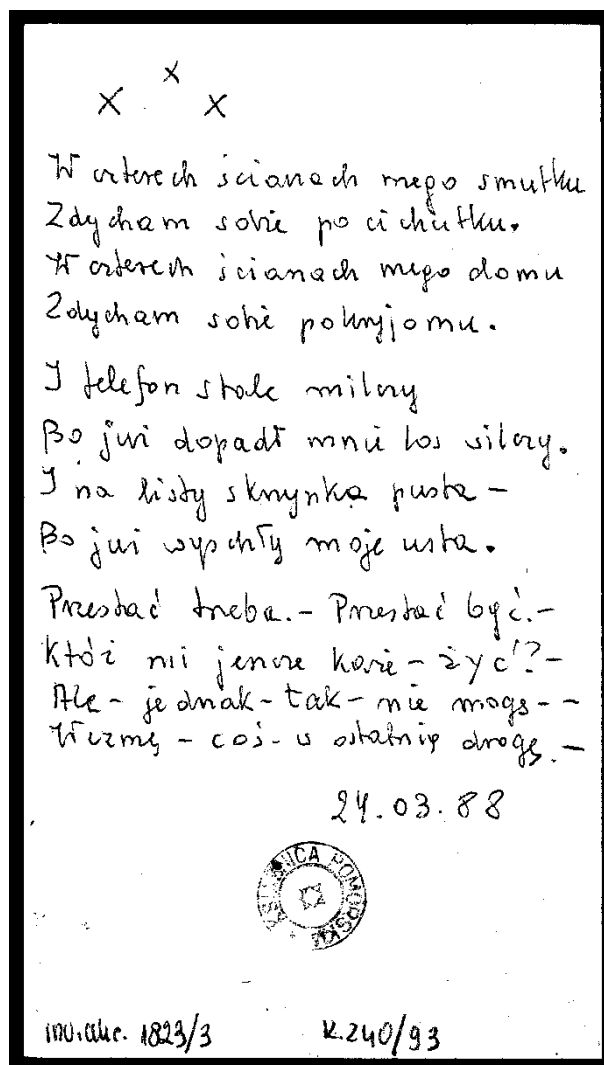 x
x x
W czterech ścianach mego smutku
Zdycham sobie po cichutku.
W czterech ścianach mego domu
Zdycham sobie pokryjomu.
I telefon stale milczy
Bo już dopadł mnie los wilczy.
I na listy skrzynka pusta –
Bo już wyschły moje usta.
Przestać trzeba. – Przestać być. –
Któż mi jeszcze każe – żyć? –
Ale – jednak – tak – nie mogę – –
Wezmę – coś – w ostatnią drogę. –
24.03.88
KSIĄŻNICA POMORSKA
inw. akc. 1823/3 K.240/93